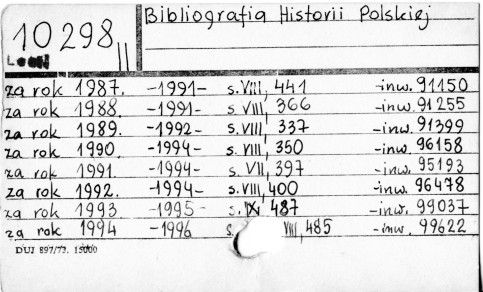 Bibliografia Historii Polskiej
10298 II
za rok 1987. -1991- s. VIII, 441 -inw. 91150
za rok 1988. -1991- s. VIII, 366 -inw. 91255
za rok 1989. -1992- s. VIII, 337 -inw. 91399
za rok 1990. -1994- s. VIII, 350 -inw. 96158
za rok 1991. -1994- s. VII, 397 -inw. 95193
za rok 1992. -1994- s. VIII, 400 -inw. 96478
za rok 1993 -1995- s. IX, 487 -inw. 99037
za rok 1994 -1996 s. VIII, 485 -inw. 99622
DUJ 897/77. 15000